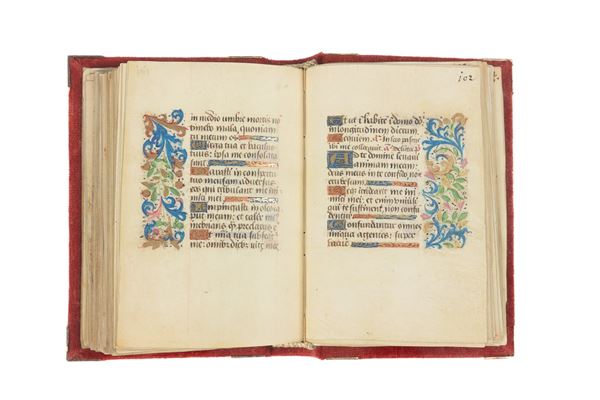 in medio umbre mortis no
timebo mala, quoniam
tu mecum es
Virga tua et baculus
tuus: ipsa me consolata
sunt
Parasti in conspec
tu meo mensam adversus
eos qui tribulant me
Impinguasti in oleo ca
put meum: et calix me
inebrians q preclarus e
Et mia tua subseq
me: omib dieb vite mee
102
Et ut i habite i domo d
in longitudinem dierum
Requiem. A. In loco pascue
ibi me collocavit. A. Delicta. p
Ad te domine levavi
animam meam:
deus meus in te confido no
erubescam
mici mei: eteni universi
qui te sustinent, non confu
dentur
Confundantur omnes
iniqua agentes: super
vacue